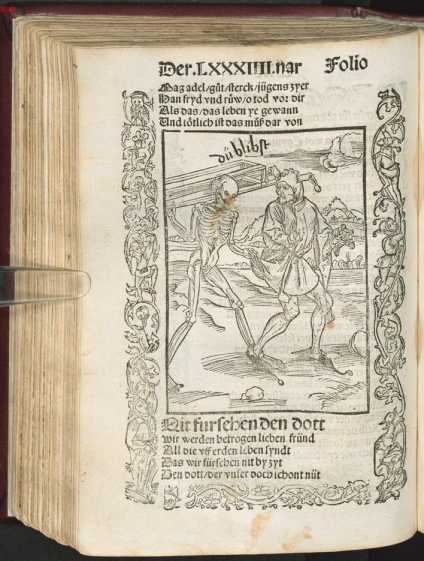 Der.LXXXIIII.nar Folio
Mag adel/gůt/sterck/jügens zyer
Han fryd vnd růw/o tod vor dir
Als das/das leben ye gewann
Und tötlich ist das můß dar von
dü blibst
Nit fursehen den dott
wir werden betrogen lieben fründ
All die vff erden leben syndt
Das wir fürsehen nit by zyt
Den dott/der vnser doch schont nüt